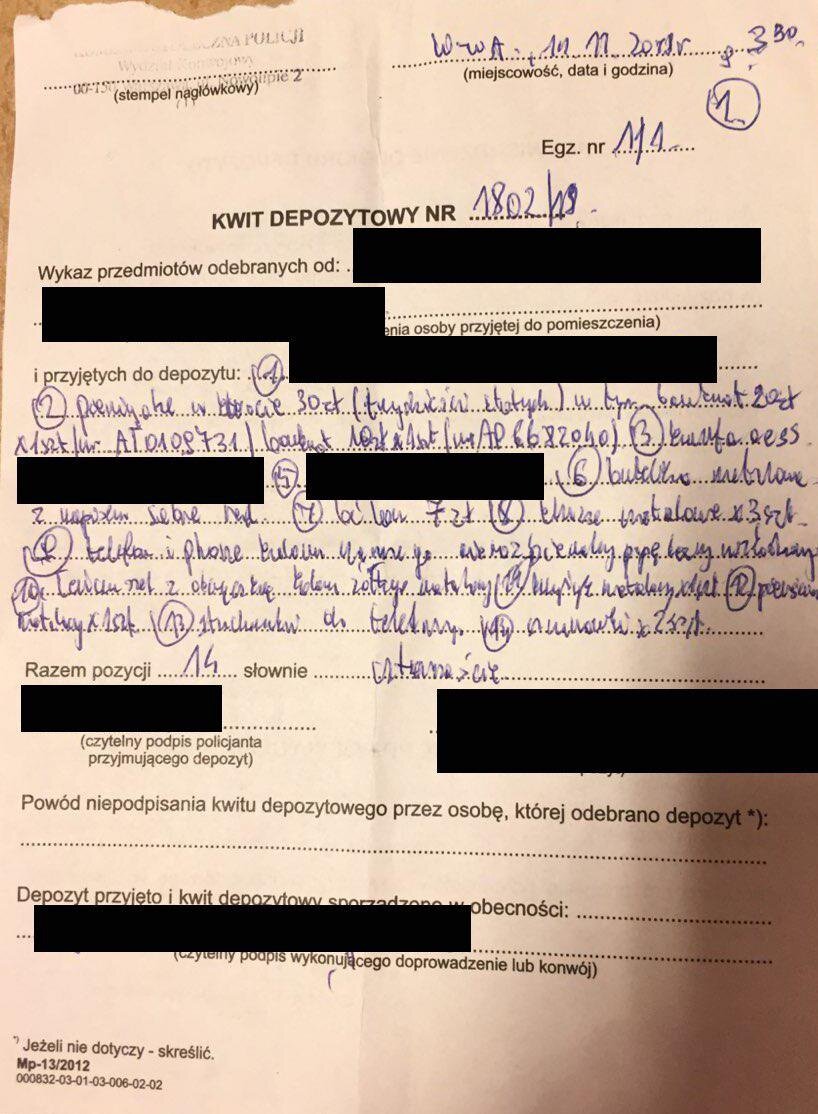 KOMENDA STOŁECZNA POLICJI
Wydział Konwojowy
00-150 Nowolipie 2
(stempel nagłówkowy)
W-WA. 11.11.2019r g. 3 30.
(miejscowość, data i godzina)
1
Egz. nr 1/1
KWIT DEPOZYTOWY NR 1802/19.
Wykaz przedmiotów odebranych od:
enia osoby przyjętej do pomieszczenia)
i przyjętych do depozytu: 1
2 pieniądze w kwocie 30zł (trzydzieści złotych) w tym banknot 20zł
x1szt/nr AT0109731/banknot 10zł x1szt/nr AP6682040) 3
5 6 butelka
z napojem 7 bilon 7zł 8 klucze metalowe x3szt.
9 telefon iphone koloru
10 z obrączką kolor żółtego 11 12
x1szt. 13 słuchawki do telefonu, 14 x2szt.
Razem pozycji 14 słownie czternaście
(czytelny podpis policjanta
przyjmującego depozyt)
Powód niepodpisania kwitu depozytowego przez osobę, której odebrano depozyt *):
Depozyt przyjęto i kwit depozytowy sporządzono w obecności:
(czytelny podpis wykonującego doprowadzenie lub konwój)
*) Jeżeli nie dotyczy - skreślić.
Mp-13/2012
000832-03-01-03-006-02-02